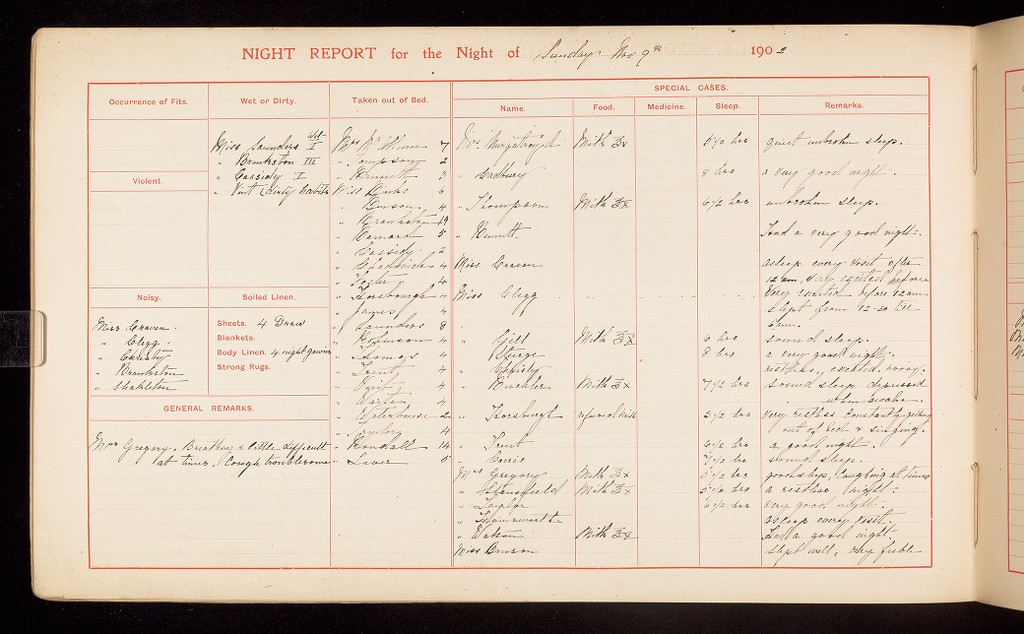 NIGHT REPORT for the Night of Sunday Nov 9th 1902
Occurrence of Fits.
Violent.
Noisy.
Miss Craven.
" Clegg "
" Christy
" Brankston
" Shakleton
Wet or Dirty.
Wet
Miss Saunders I
" Brankston III
" Cassidy I
" Vint (dirty habits
Soiled Linen.
Sheets. 4 Draw
Blankets.
Body Linen. 4 night gowns
Strong Rugs.
GENERAL REMARKS.
Mrs Gregory. Breathing a little difficult
at times. Cough troublesome
Taken out of Bed.
Mrs 7
" Tompson 2
" Bennett 3
Miss Binks 6
" Benson 4
" Brankston 19
" Barnard 5
" Cassidy 2
" Chadwick 4
" Foster 4
" Horsbourgh 4
" James 4
" Saunders 8
" Robinson 4
" Thomas 4
" Trinty 4
" Vint 4
" Water 4
" Waterhouse 2
" 4
" Kendall 14
" Lever 8
SPECIAL CASES.
Name. Food. Medicine. Sleep. Remarks.
Mrs Murgatroyd Milk ℥x 5 1/2 hrs quiet unbroken sleep.
" Bradbury 8 hrs a very good night.
" Thompson Milk ℥x 6 1/2 hrs unbroken sleep.
" Bennett Had a very good night.
Miss Craven asleep every visit after
12 am, very excited before
Miss Clegg Very excited before 12 am
slept from 12-30 till
6 am.
" Gill Milk ℥x 6 hrs sound sleep.
" Sturge 8 hrs a very good night.
" restless, excited, noisy.
" Buckler Milk ℥x 7 1/2 hrs sound sleep depressed
when awake.
" Horsburgh refused milk 3 1/2 hrs Very restless constantly getting
out of bed & singing.
" Trint 6 1/2 hrs a good night.
" Harris 7 1/2 hrs sound sleep.
Mrs Gregory Milk ℥x 5 1/2 hrs good sleep, coughing at times
" Stansfield Milk ℥x 5 1/2 hrs a restless night.
" Taylor 6 1/2 hrs very good night.
" Farnsworth asleep every visit.
" Watson Milk ℥x Had a good night.
Miss Benson slept well, very feeble